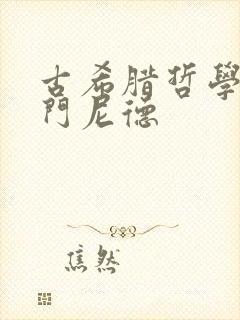 古希腊哲學
門尼德
焦然